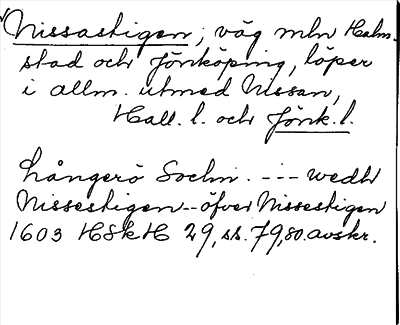 Nissastigen; väg mln Halm-
stad och Jönköping, löper
i allm. utmed Nissan,
Hall. l. och Jönk. l.
Långerö Sochn. --- wedh
Nissestigen -- öfver Nissestigen
1603 HSkH 29, ss. 79, 80. avskr.